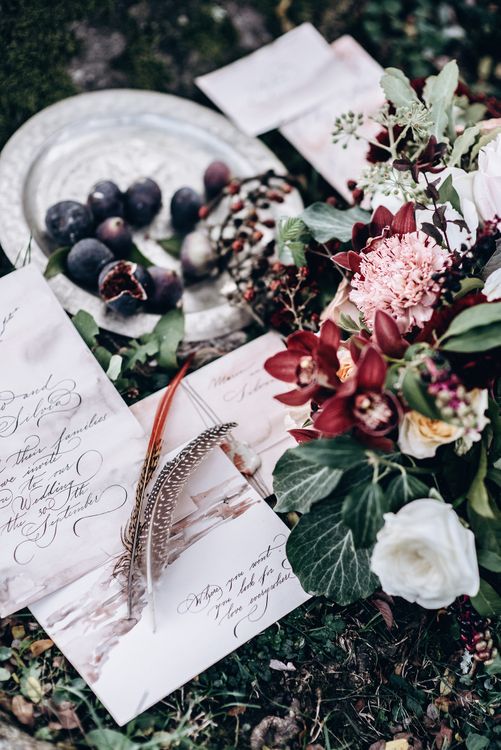 and
Silvia
their families
we invite
to our
Wedding
the 30th
September
Where you want
you look for
love everywhere